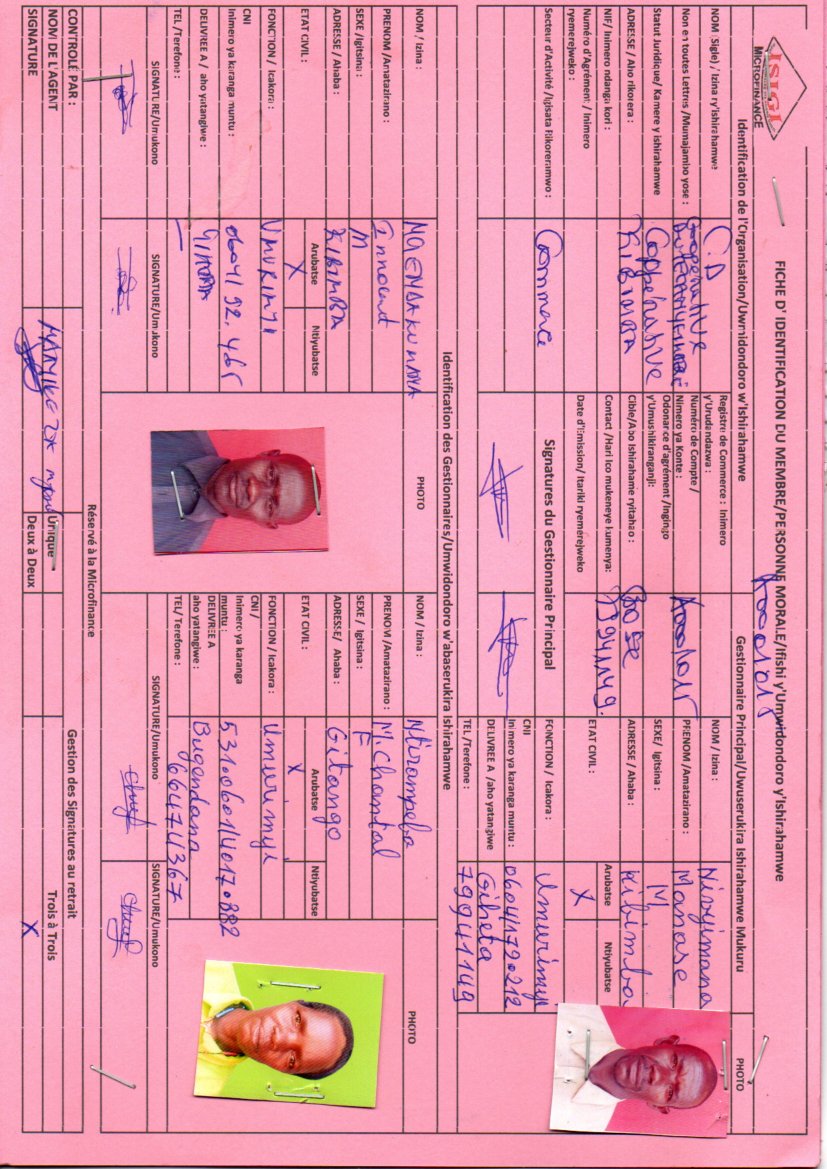 ISIGI
MICROFINANCE
FICHE D' IDENTIFICATION DU MEMBRE/PERSONNE MORALE/Ifishi y'Umwidondoro y'Ishirahamwe
Identification de l'Organisation/Uwmidondoro w'Ishirahamwe
Gestionnaire Principal/Uwuserukira Ishirahamwe Mukuru
PHOTO
NOM (Sigle) / Izina ry'ishirahamwe
C.D
Registre de Commerce : Inimero y'Urudandazwa :
Non en toutes Lettres /Mumajambo yose :
Coopérative
Numéro de Compte / Nimero ya Konte :
Statut Juridique/ Kamere y ishirahamwe
Coppérative
Odonance d'agrément /Ingingo y'Umushikiranganji:
ADRESSE / Aho rikorera :
KIBIMBA
Cible/Abo Ishirahame ryitaho :
NIF/ Inimero ndanga kori :
Contact /Hari ico mukeneye kumenya:
79941149.
Numéro d'Agrément / Inimero ryemerejweko :
Date d'Emission/ Itariki ryemerejweko
Secteur d'Activité /Igisata Rikoreramwo :
Commerce
Signatures du Gestionnaire Principal
NOM / Izina :
Niyimana
PRENOM /Amatazirano :
Manase
SEXE/ Igitsina :
M
ADRESSE / Ahaba :
Kibimba
ETAT CIVIL :
Arubatse
Ntiyubatse
X
FONCTION / Icakora :
Umurimyi
CNI
Inimero ya karanga muntu :
0604/1720212
DELIVREE A / aho yatangiwe
Giheta
TEL /Terefone :
79941149
Identification des Gestionnaires/Umwidondoro w'abaserukira Ishirahamwe
NOM / Izina :
PHOTO
PRENOM /Amatazirano :
Innocent
SEXE /Igitsina :
M
ADRESSE / Ahaba :
KIBIMBA
ETAT CIVIL :
Arubatse
Ntiyubatse
X
FONCTION / Icakora :
UMURIMYI
CNI
Inimero ya karanga muntu :
0604/92.465
DELIVREE A / aho yatangiwe :
TEL /Terefone :
SIGNATURE/Umukono
SIGNATURE/Umukono
NOM / Izina :
Ntirampeba
PHOTO
PRENOM /Amatazirano :
M.Chantal
SEXE / Igitsina :
F
ADRESSE/ Ahaba :
Gitango
ETAT CIVIL :
Arubatse
Ntiyubatse
X
FONCTION / Icakora :
Umurimyi
CNI /
Inimero ya karanga muntu :
DELIVREE A
aho yatangiwe :
Bugendana
TEL/ Terefone :
66474367
SIGNATURE/Umukono
SIGNATURE/Umukono
Réservé à la Microfinance
CONTROLÉ PAR :
Gestion des Signatures au retrait
NOM DE L'AGENT
Unique
Trois à Trois
SIGNATURE
Deux à Deux
X